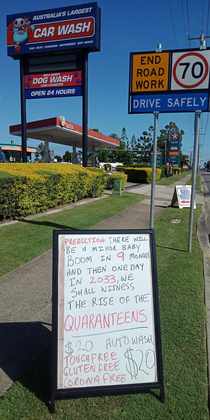 AUSTRALIA'S LARGEST
CAR WASH
DOG WASH
OPEN 24 HOURS
END
ROAD
WORK
70
DRIVE SAFELY
PREDICTION: THERE WILL
BE A MINOR BABY
BOOM IN 9 MONTHS
AND THEN ONE DAY
IN 2033, WE
SHALL WITNESS
THE RISE OF THE
QUARANTEENS
$20 AUTO WASH
TOUCH FREE $20
GLUTEN FREE
CORONA FREE